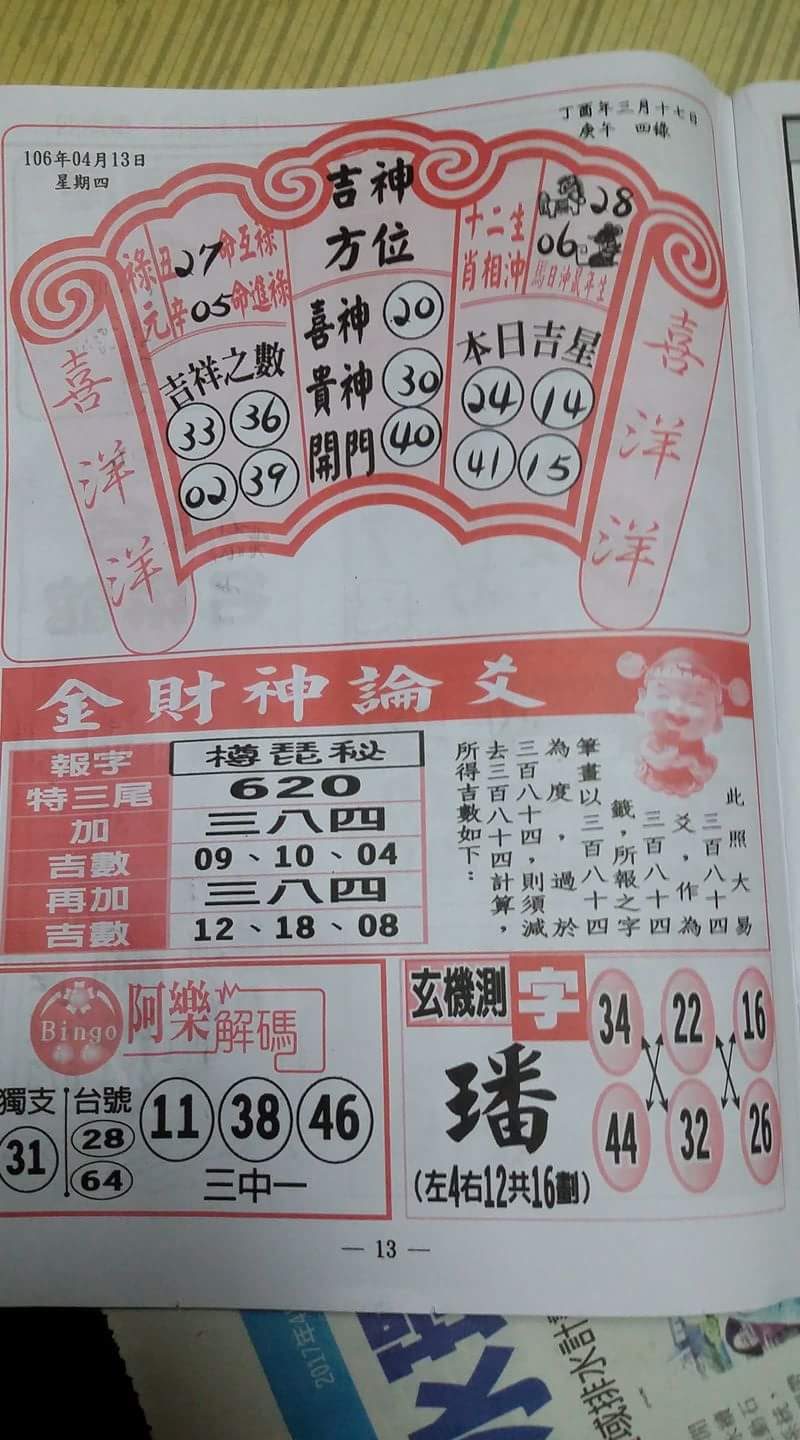 106年04月13日
星期四
丁酉年三月十七日
庚午 四綠
祿元
丑 27 命互祿
辛 05 命進祿
吉祥之數
33 36
02 39
吉神
方位
喜神 20
貴神 30
開門 40
十二生
肖相沖
28
06
馬日沖鼠年生
本日吉星
24 14
41 15
喜洋洋
喜洋洋
金財神論爻
報字 樽琵秘
特三尾 620
加 三八四
吉數 09、10、04
再加 三八四
吉數 12、18、08
此照大易
三百八十四
爻，作為
三百八十四
籤，所報之字
筆畫以三百八十四
為度，過於
三百八十四，則須減
去三百八十四計算，
所得吉數如下：
Bingo 阿樂解碼
獨支 31
台號 28 64
11 38 46
三中一
玄機測字
璠
(左4右12共16劃)
34 22 16
44 32 26
— 13 —
2017年4
域排水計